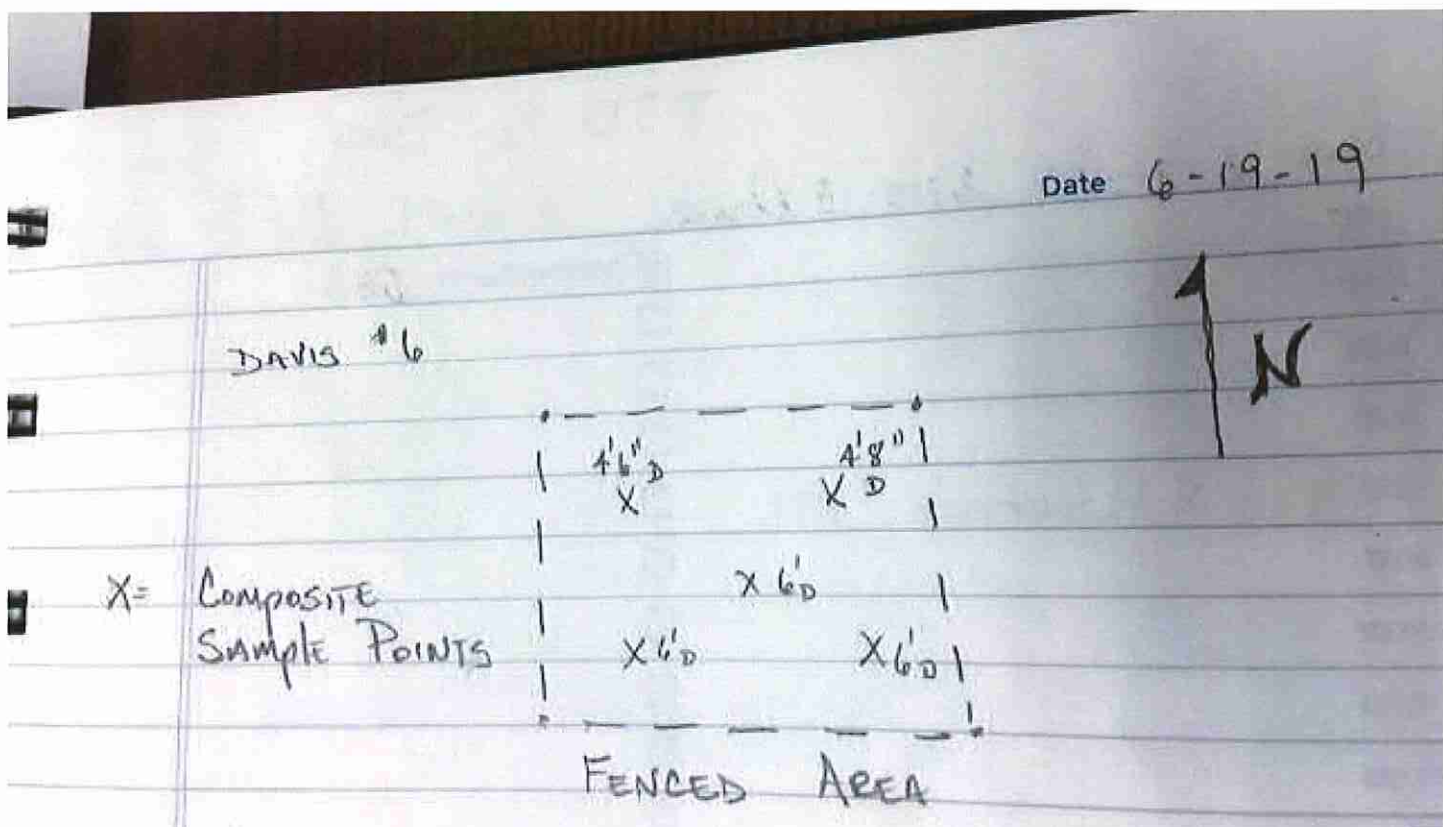 Date 6-19-19
DAVIS #6
N
4'6" D
X
4'8"
X D
X 6'D
X= COMPOSITE
SAMPLE POINTS
X 6'D
X 6'D
FENCED AREA